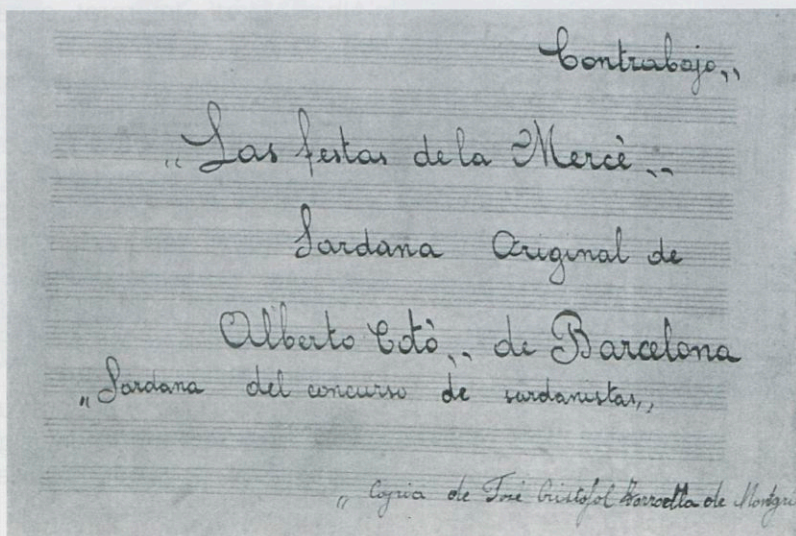 Contrabajo,,
„Las festas de la Mercè„
Sardana Original de
Alberto Cotò„ de Barcelona
„Sardana del concurso de sardanistas„
„Copia de José Cristofol de Montgrí